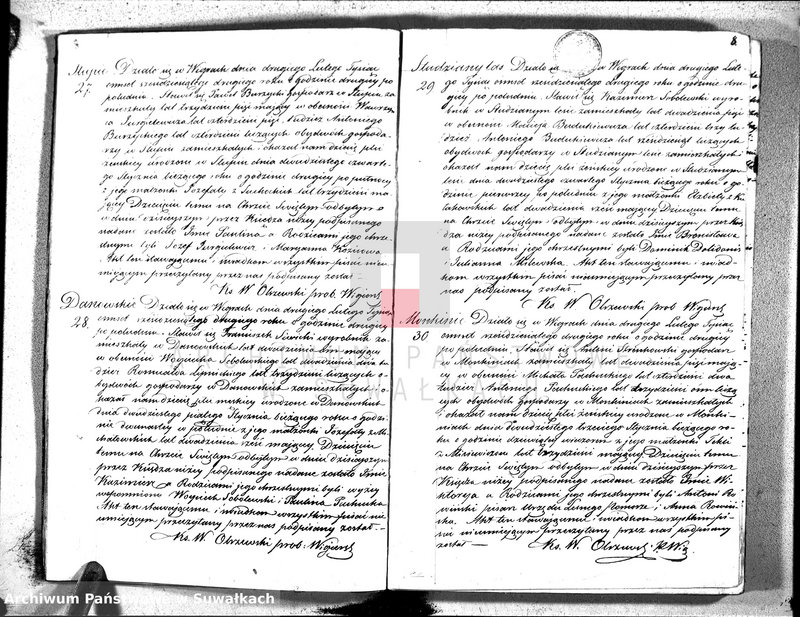 8.
Słupie Działo się w Wigrach dnia drugiego Lutego Tysiąc
27. ośmset sześćdziesiątego drugiego roku o godzinie drugiey po
południu. Stawił się Paweł Burzych Gospodarz w Słupiu za
mieszkały lat trzydzieści pięć mający w obecności Wawrzy
lat czterdzieści pięć, tudzież Antoniego
Burzyńskiego lat czterdzieści liczących obydwóch gospoda
rzy w Słupiu zamieszkałych i okazał nam dziecię płci
żeńskiey urodzone w Słupiu dnia dwudziestego czwarte
go Stycznia bieżącego roku o godzinie drugiey po północy
z jego małżonki Jozefaty z Suchockich lat trzydzieści ma
jącey Dziecięciu temu na Chrzcie Świętym odbytym
w dniu dzisieyszym przez Księdza niżey podpisanego
nadane zostało Imie a Rodzicami jego chrze
stnymi byli Jozef Jurgielewicz i Maryanna
Akt ten stawającemu i świadkom wszystkim pisać nieu
miejącym przeczytany przez nas podpisany został
Ks. W. Olszewski prob. Wigiersk
Danowskie Działo się w Wigrach dnia drugiego Lutego Tysiąc
28. ośmset sześćdziesiątego drugiego roku o godzinie drugiey
po południu. Stawił się Franciszek wyrobnik za
mieszkały w Danowskich lat dwadzieścia mający
w obecności Woyciecha Sobolewskiego lat dwadzieścia dwa tu
dzież Romualda Lipińskiego lat trzydzieści liczących o
bydwóch gospodarzy w Danowskich zamieszkałych i o
kazał nam dziecię płci męzkiey urodzone w Danowskich
dnia dwudziestego piątego Stycznia bieżącego roku o godzi
nie dwunastey w południe z jego małżonki Jozefaty z Mi
chalewskich lat dwadzieścia sześć mającey. Dziecięciu
temu na Chrzcie Świętym odbytym w dniu dzisieyszym
przez Księdza niżey podpisanego nadane zostało Imie
Kazimierz a Rodzicami jego chrzestnymi byli wyżey
wspomniony Woyciech Sobolewski i Paulina
Akt ten stawającemu i świadkom wszystkim pisać nie
umiejącym przeczytany przez nas podpisany został
Ks. W. Olszewski prob. Wigiersk
Studziany las Działo się w Wigrach dnia drugiego Lute
29. go Tysiąc ośmset sześćdziesiątego drugiego roku o godzinie dru
giey po południu. Stawił się Kazimierz Sobolewski wyro
bnik w Studzianym lesie zamieszkały lat dwadzieścia pięć
w obecności Macieja Berdukiewicza lat czterdzieści trzy tu
dzież Antoniego Berdukiewicza lat liczących
obydwóch gospodarzy w Studzianym lesie zamieszkałych i
okazał nam dziecię płci żeńskiey urodzone w Studzianym
lesie dnia dwudziestego czwartego Stycznia bieżącego roku o go
dzinie pierwszey po południu z jego małżonki Elżbiety z
lat dwadzieścia sześć mającey Dziecięciu temu
na Chrzcie Świętym odbytym w dniu dzisieyszym przez Księ
dza niżey podpisanego nadane zostało Imie Bronisława
a Rodzicami jego chrzestnymi byli Dominik
i Julianna Milewska. Akt ten stawającemu i świad
kom wszystkim pisać nieumiejącym przeczytany przez
nas podpisany został
Ks. W. Olszewski prob. Wigiersk
Monkinie Działo się w Wigrach dnia drugiego Lutego Tysiąc
30 ośmset sześćdziesiątego drugiego roku o godzinie drugiey
po południu. Stawił się Antoni gospodarz
w Monkiniach zamieszkały lat dwadzieścia pięć mają
cy w obecności Michała lat czterdzieści dwa
tudzież Antoniego lat trzydzieści ośm liczą
cych obydwóch gospodarzy w Monkiniach zamieszkałych
i okazał nam dziecię płci żeńskiey urodzone w Monki
niach dnia dwudziestego trzeciego Stycznia bieżącego ro
ku o godzinie dziewiątey wieczorem z jego małżonki Tekli
z lat trzydzieści mającey Dziecięciu temu
na Chrzcie Świętym odbytym w dniu dzisieyszym przez
Księdza niżey podpisanego nadane zostało Imie Wi
ktorya a Rodzicami jego chrzestnymi byli Antoni Ro
wiński pisarz Urzędu i Anna Rowiń
ska. Akt ten stawającemu i świadkom wszystkim pi
sać nieumiejącym przeczytany przez nas podpisany
został
Ks. W. Olszewski P.W.
Archiwum Państwowe w Suwałkach